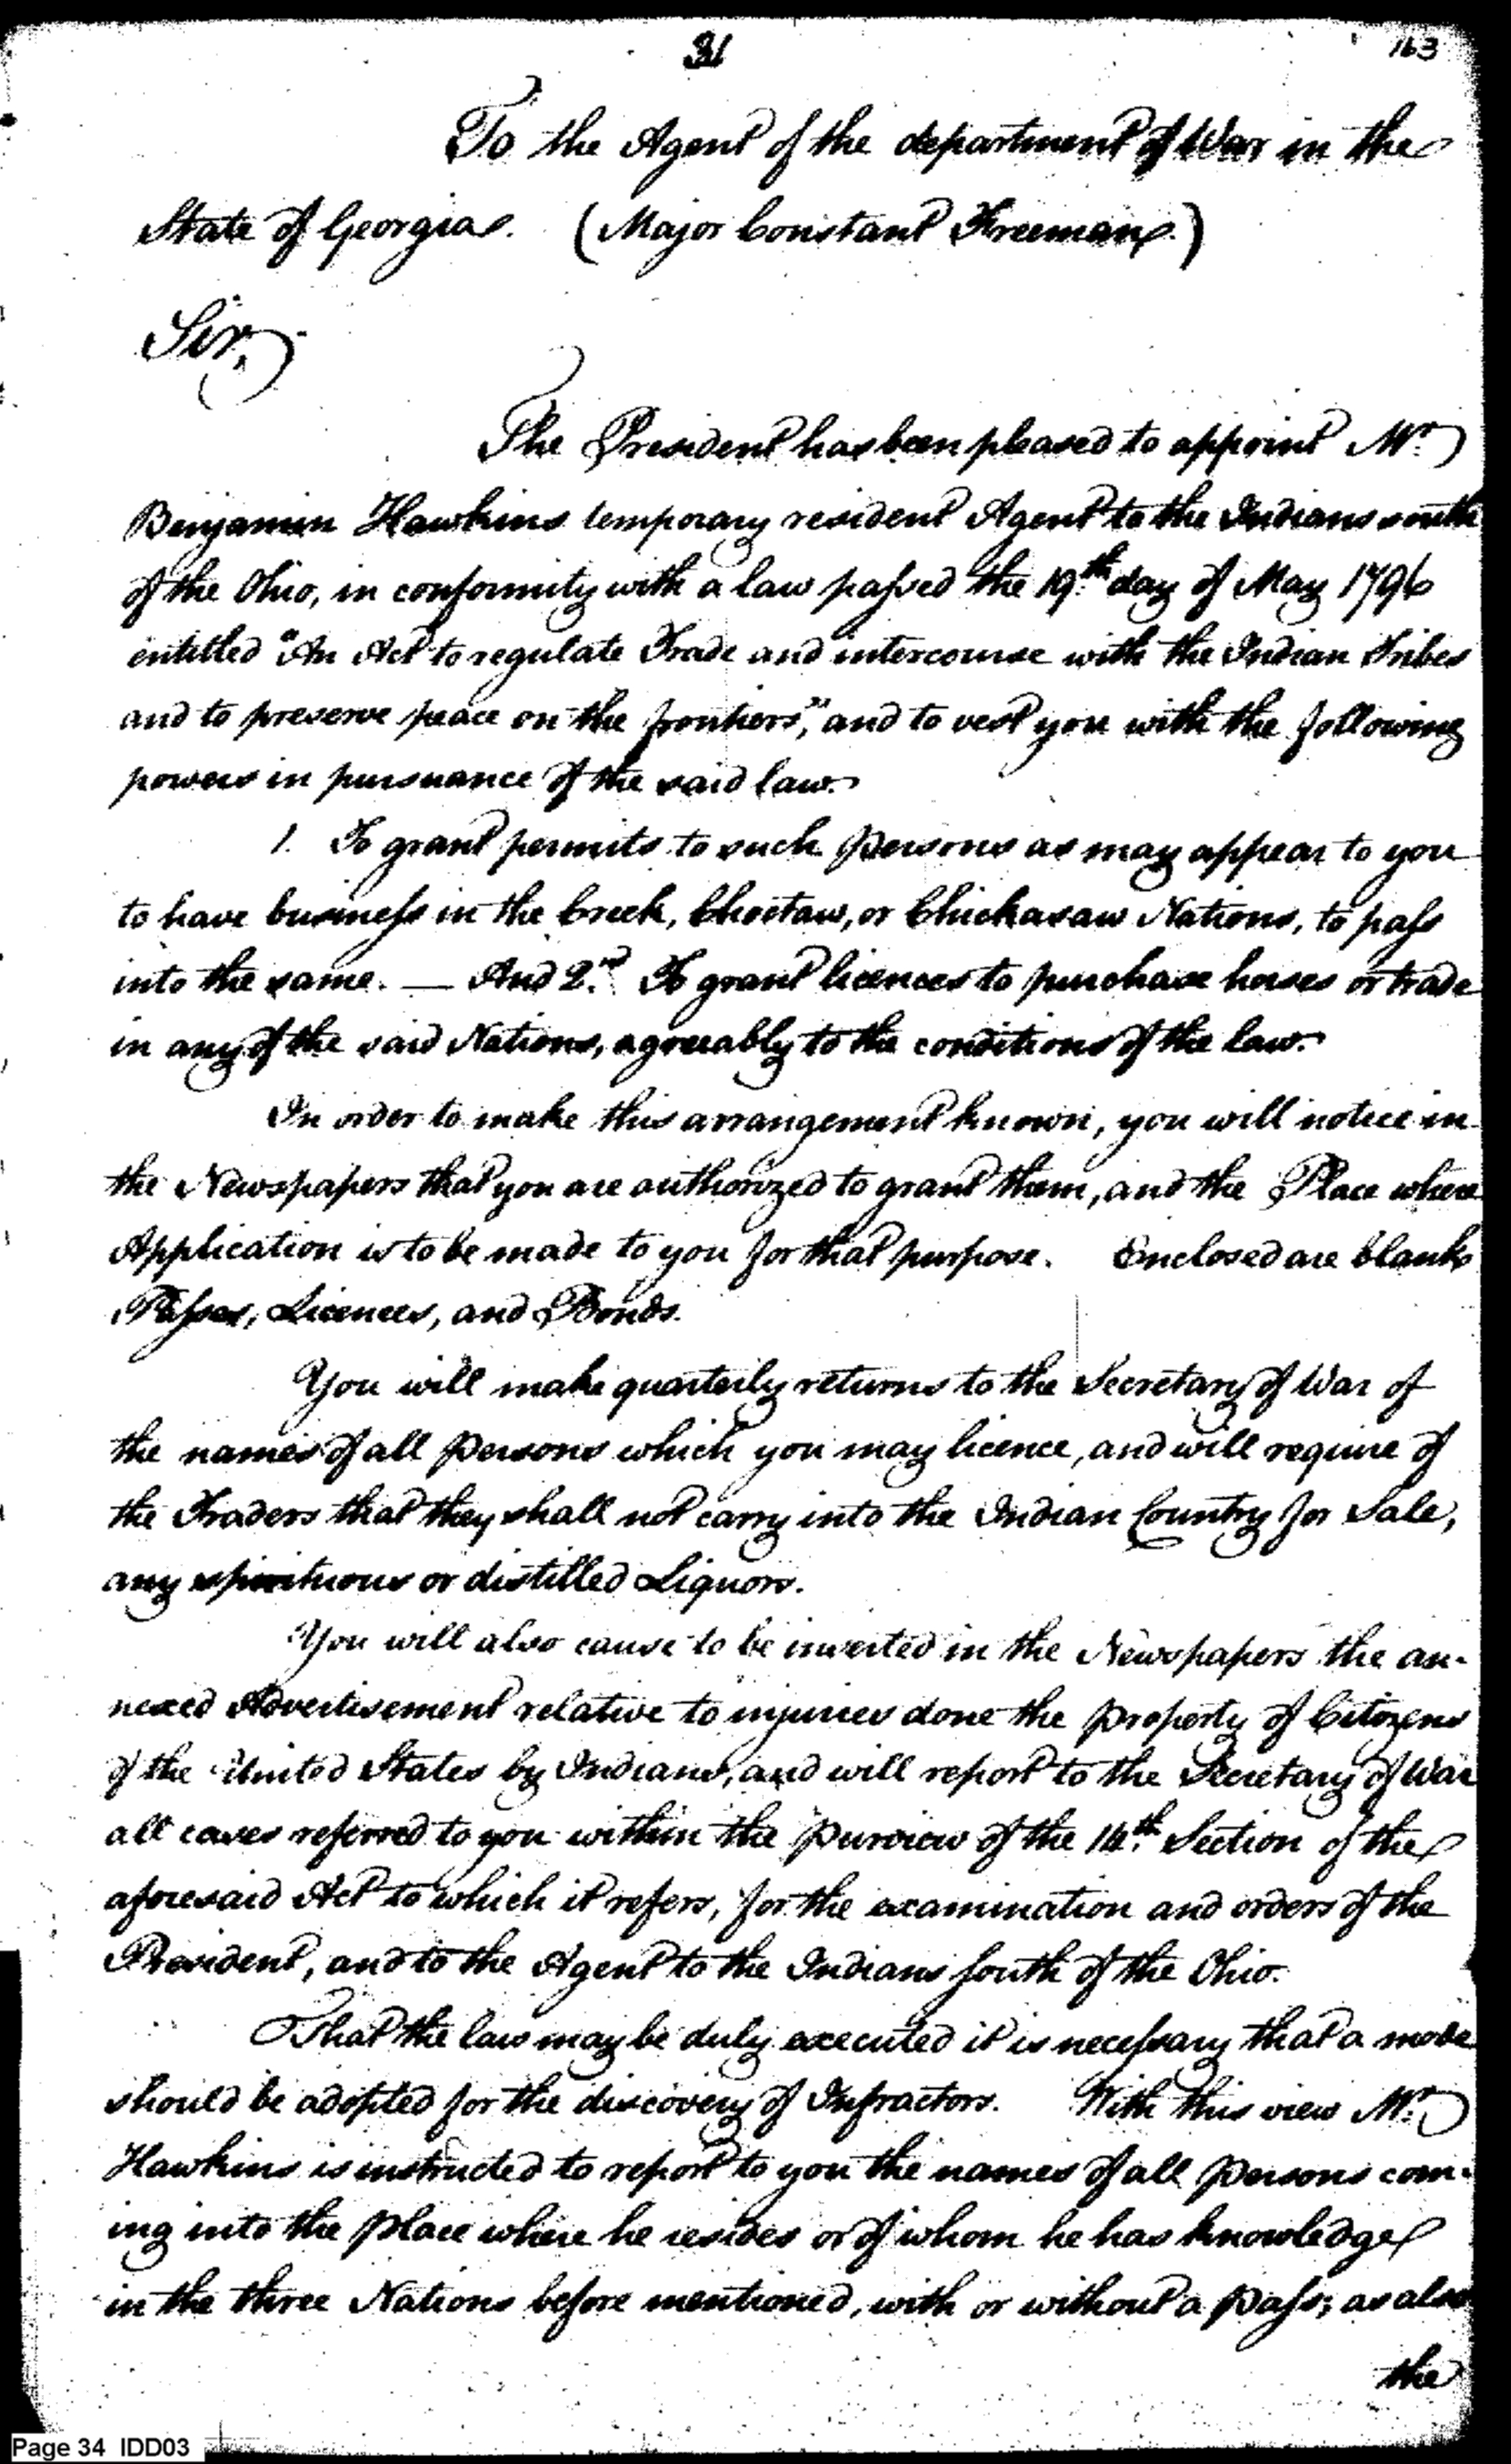 31
163
To the Agent of the department of War in the
State of Georgia. (Major Constant Freeman.)
Sir,
The President has been pleased to appoint Mr.
Benjamin Hawkins temporary resident Agent to the Indians south
of the Ohio, in conformity with a law passed the 19th day of May 1796
entitled "An Act to regulate Trade and intercourse with the Indian Tribes
and to preserve peace on the frontiers," and to vest you with the following
powers in pursuance of the said law.
1. To grant permits to such persons as may appear to you
to have business in the Creek, Choctaw, or Chickasaw Nations, to pass
into the same. — And 2nd. To grant licences to purchase horses or trade
in any of the said Nations, agreeably to the conditions of the law.
In order to make this arrangement known, you will notice in
the Newspapers that you are authorized to grant them, and the Place where
Application is to be made to you for that purpose. Enclosed are blank
Passes, Licences, and Bonds.
You will make quarterly returns to the Secretary of War of
the names of all persons which you may licence, and will require of
the Traders that they shall not carry into the Indian Country for Sale,
any spirituous or distilled Liquors.
You will also cause to be inserted in the Newspapers the an-
nexed Advertisement relative to injuries done the property of Citizens
of the United States by Indians, and will report to the Secretary of War
all cases referred to you within the purview of the 14th. Section of the
aforesaid Act to which it refers, for the examination and orders of the
President, and to the Agent to the Indians south of the Ohio.
That the law may be duly executed it is necessary that a mode
should be adopted for the discovery of Infractors. With this view Mr.
Hawkins is instructed to report to you the names of all persons com-
ing into the place where he resides or of whom he has knowledge
in the three Nations before mentioned, with or without a pass; as also
the
Page 34 IDD03